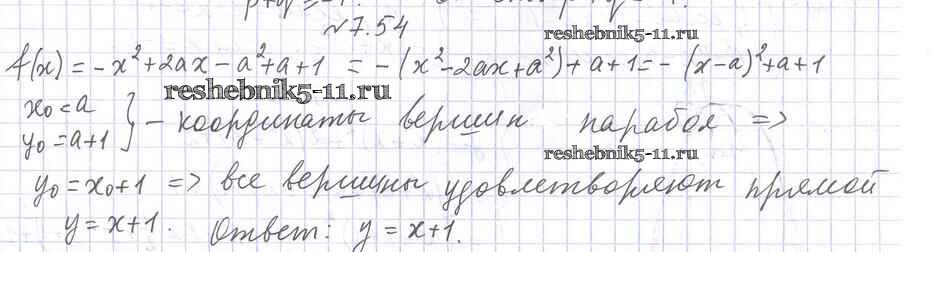 №7.54
reshebnik5-11.ru
f(x) = -x²+2ax-a²+a+1 = -(x²-2ax+a²)+a+1 = -(x-a)²+a+1
reshebnik5-11.ru
x₀=a
y₀=a+1 } - координаты вершин парабол =>
reshebnik5-11.ru
y₀=x₀+1 => все вершины удовлетворяют прямой
y=x+1. Ответ: y=x+1.